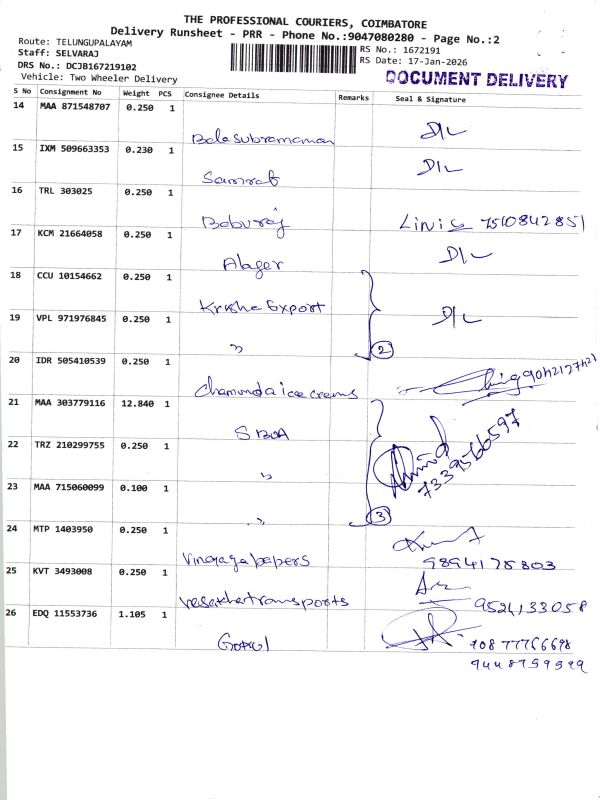 THE PROFESSIONAL COURIERS, COIMBATORE
Delivery Runsheet - PRR - Phone No.:9047080280 - Page No.:2
Route: TELUNGUPALAYAM
Staff: SELVARAJ
RS No.: 1672191
DRS No.: DCJB167219102
RS Date: 17-Jan-2026
Vehicle: Two Wheeler Delivery
DOCUMENT DELIVERY
S No Consignment No Weight PCS Consignee Details Remarks Seal & Signature
14 MAA 871548707 0.250 1
Balasubramanian D/L
15 IXM 509663353 0.230 1
Samrat D/L
16 TRL 303025 0.250 1
Baburaj Linic 7510842851
17 KCM 21664058 0.250 1
Alager D/L
18 CCU 10154662 0.250 1
Krisha Export
19 VPL 971976845 0.250 1 D/L
" 2
20 IDR 505410539 0.250 1
Chamunda ice creams
21 MAA 303779116 12.840 1
SBOA
22 TRZ 210299755 0.250 1
" 7339566597
23 MAA 715060099 0.100 1
" 3
24 MTP 1403950 0.250 1
Vinayaga papers 9894178803
25 KVT 3493008 0.250 1
9524133058
26 EDQ 11553736 1.105 1
Gokul